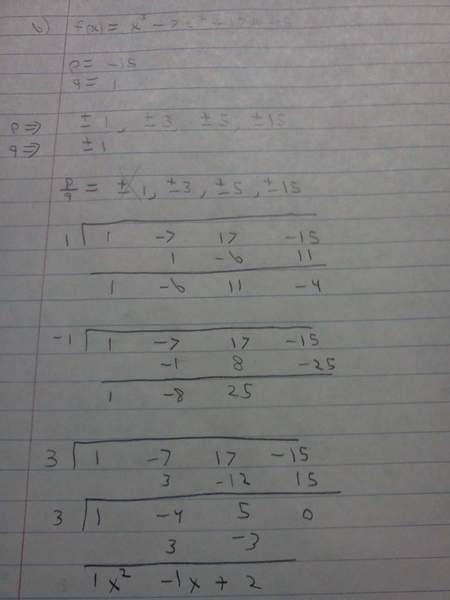 b) f(x) = x³ - 7x² + 17x - 15
p = -15
q = 1
p ⇒ ±1, ±3, ±5, ±15
q ⇒ ±1
p/q = ±1, ±3, ±5, ±15
1 1 -7 17 -15
1 -6 11
1 -6 11 -4
-1 1 -7 17 -15
-1 8 -25
1 -8 25
3 1 -7 17 -15
3 -12 15
3 1 -4 5 0
3 -3
1x² -1x + 2